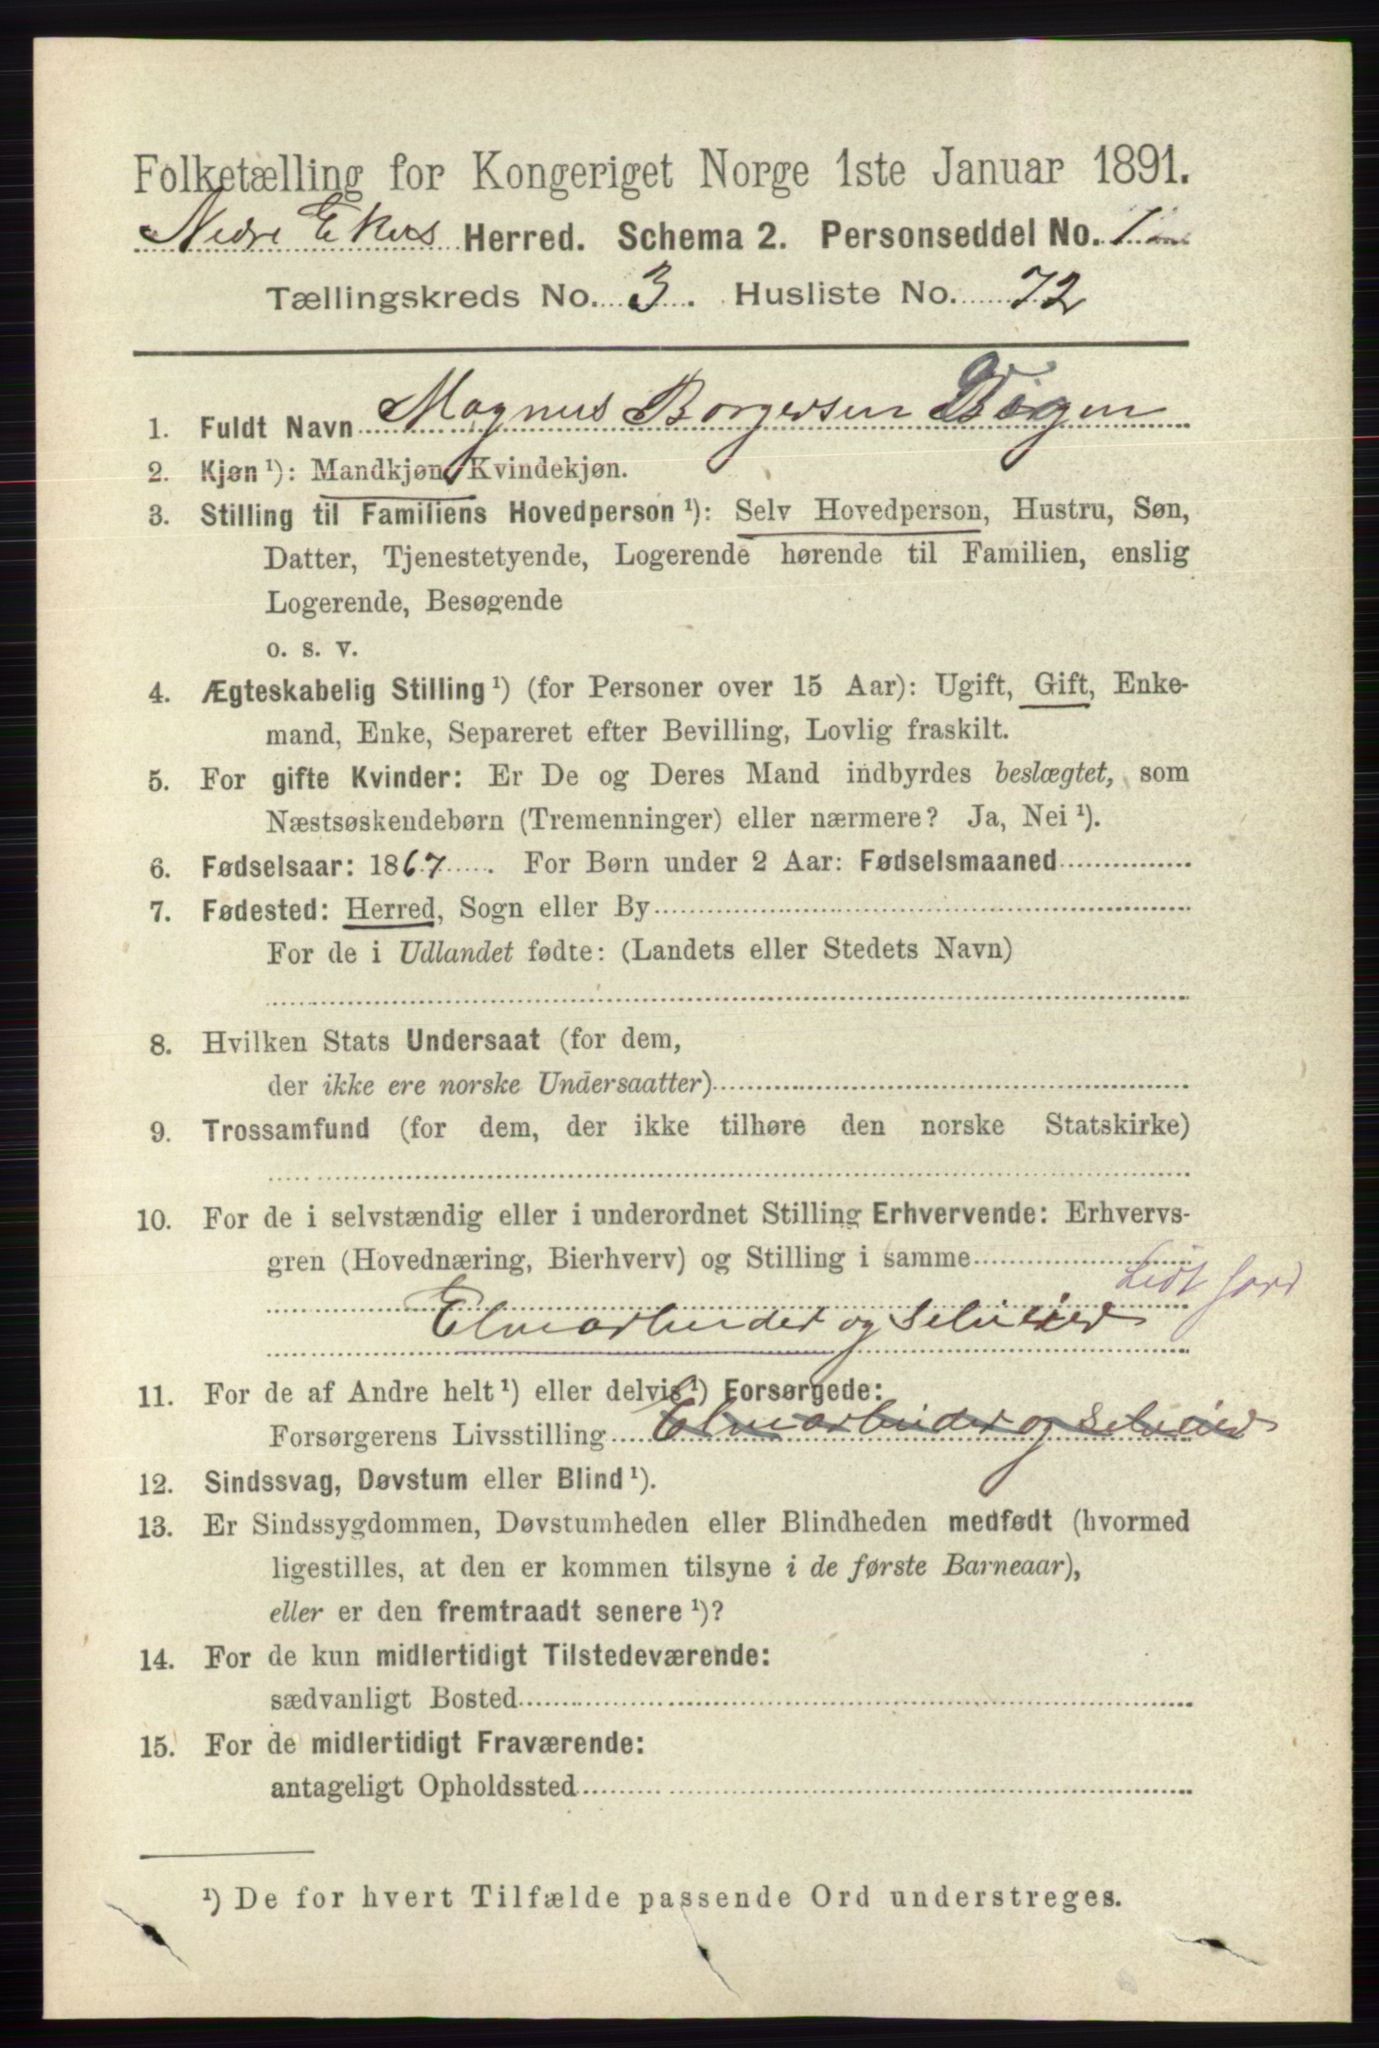 Folketælling for Kongeriget Norge 1ste Januar 1891.
Nedre Ekers Herred. Schema 2. Personseddel No. 1
Tællingskreds No. 3. Husliste No. 72
1. Fuldt Navn Magnus Borgersen
2. Kjøn ¹): Mandkjøn, Kvindekjøn.
3. Stilling til Familiens Hovedperson ¹): Selv Hovedperson, Hustru, Søn,
Datter, Tjenestetyende, Logerende hørende til Familien, enslig
Logerende, Besøgende
o. s. v.
4. Ægteskabelig Stilling ¹) (for Personer over 15 Aar): Ugift, Gift, Enke-
mand, Enke, Separeret efter Bevilling, Lovlig fraskilt.
5. For gifte Kvinder: Er De og Deres Mand indbyrdes beslægtet, som
Næstsøskendebørn (Tremenninger) eller nærmere? Ja, Nei ¹).
6. Fødselsaar: 1867. For Børn under 2 Aar: Fødselsmaaned
7. Fødested: Herred, Sogn eller By
For de i Udlandet fødte: (Landets eller Stedets Navn)
8. Hvilken Stats Undersaat (for dem,
der ikke ere norske Undersaatter)
9. Trossamfund (for dem, der ikke tilhøre den norske Statskirke)
10. For de i selvstændig eller i underordnet Stilling Erhvervende: Erhvervs-
gren (Hovednæring, Bierhverv) og Stilling i samme
Lidt Jord
Elvearbeider og Selveier
11. For de af Andre helt ¹) eller delvis ¹) Forsørgede:
Forsørgerens Livsstilling Elvearbeider og Selveier
12. Sindssvag, Døvstum eller Blind ¹).
13. Er Sindssygdommen, Døvstumheden eller Blindheden medfødt (hvormed
ligestilles, at den er kommen tilsyne i de første Barneaar),
eller er den fremtraadt senere ¹)?
14. For de kun midlertidigt Tilstedeværende:
sædvanligt Bosted
15. For de midlertidigt Fraværende:
antageligt Opholdssted
¹) De for hvert Tilfælde passende Ord understreges.